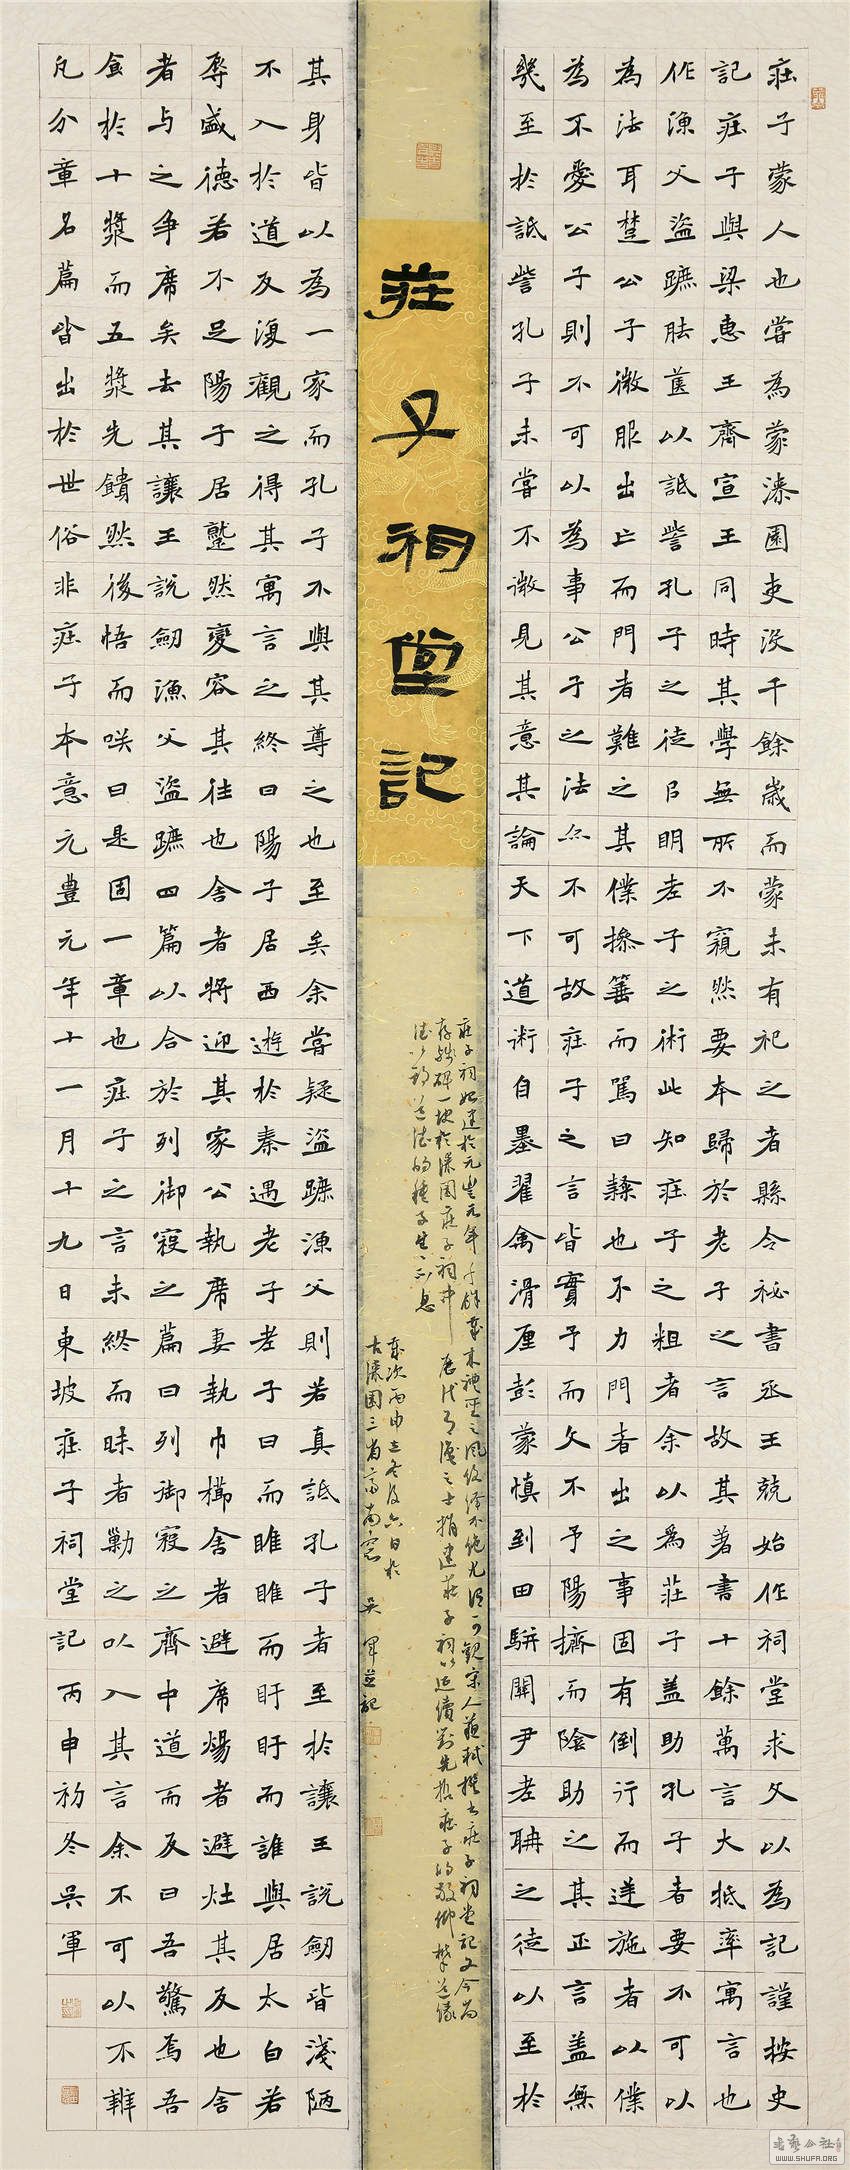 莊子蒙人也嘗為蒙漆園吏沒千餘歲而蒙未有祀之者縣令祕書丞王兢始作祠堂求文以為記謹按史
記莊子與梁惠王齊宣王同時其學無所不窺然要本歸於老子之言故其著書十餘萬言大抵率寓言也
作漁父盜蹠胠篋以詆訾孔子之徒以明老子之術此知莊子之粗者余以為莊子蓋助孔子者要不可以
為法耳楚公子微服出亡而門者難之其僕操箠而罵曰隸也不力門者出之事固有倒行而逆施者以僕
為不愛公子則不可以為事公子之法亦不可故莊子之言皆實予而文不予陽擠而陰助之其正言蓋無
幾至於詆訾孔子未嘗不微見其意其論天下道術自墨翟禽滑厘彭蒙慎到田駢關尹老聃之徒以至於
莊子祠堂記
莊子祠始建於元豐元年千餘載來禮聖之風俗綿不絕尤可觀宋人蘇軾撰書莊子祠堂記文今尚
存殘碑一塊於漆園莊子祠中歷代有識之士捐建莊子祠以延續對先哲莊子的敬仰
道德的種子生生不息
歲次丙申立冬後六日於
古漆園三省齋南窗 吳軍並記
其身皆以為一家而孔子不與其尊之也至矣余嘗疑盜蹠漁父則若真詆孔子者至於讓王說劍皆淺陋
不入於道反復觀之得其寓言之終曰陽子居西遊於秦遇老子老子曰而睢睢而盱盱而誰與居太白若
辱盛德若不足陽子居蹵然變容其往也舍者將迎其家公執席妻執巾櫛舍者避席煬者避灶其反也舍
者与之爭席矣去其讓王說劍漁父盜蹠四篇以合於列御寇之篇曰列御寇之齊中道而反曰吾驚焉吾
食於十漿而五漿先饋然後悟而笑曰是固一章也莊子之言未終而昧者勦之以入其言余不可以不辨
凡分章名篇皆出於世俗非莊子本意元豐元年十一月十九日東坡莊子祠堂記丙申初冬吳軍
WWW.SHUFA.ORG